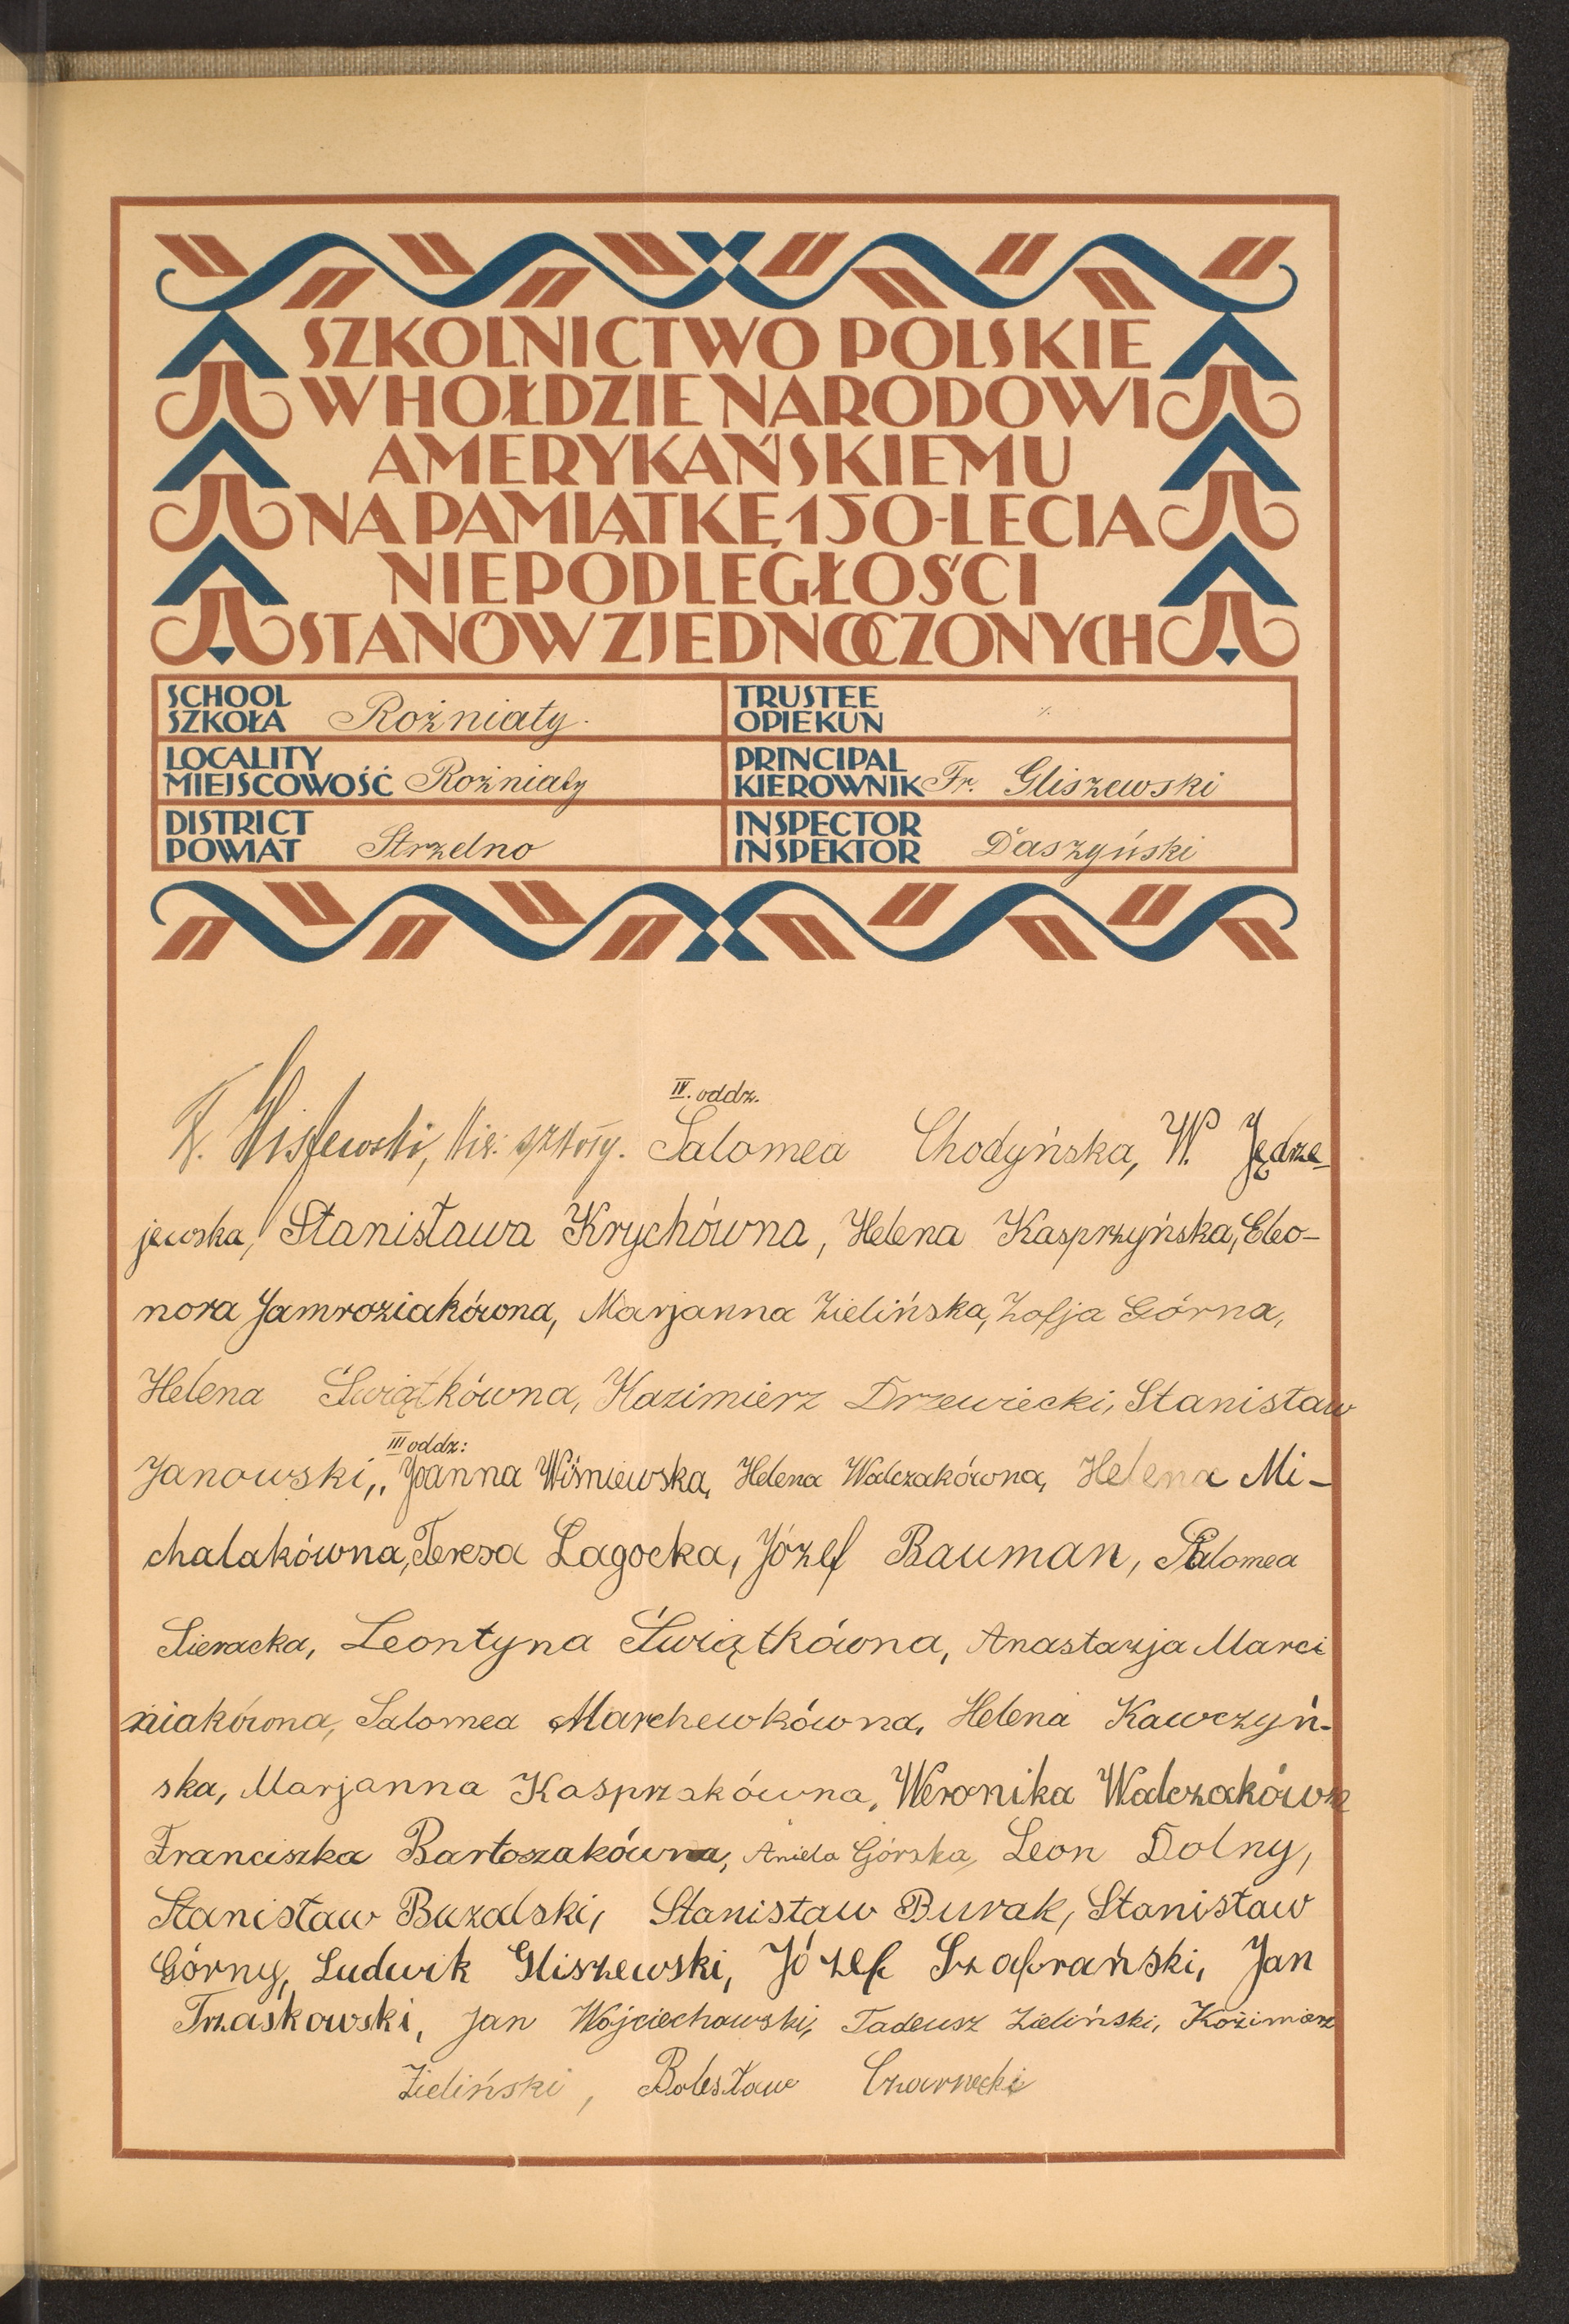 SZKOLNICTWO POLSKIE
W HOŁDZIE NARODOWI
AMERYKAŃSKIEMU
NA PAMIĄTKĘ 150-LECIA
NIEPODLEGŁOŚCI
STANÓW ZJEDNOCZONYCH
SCHOOL
SZKOŁA Rożniaty.
TRUSTEE
OPIEKUN
LOCALITY
MIEJSCOWOŚĆ Rożniaty
PRINCIPAL
KIEROWNIK Fr. Gliszewski
DISTRICT
POWIAT Strzelno
INSPECTOR
INSPEKTOR Daszyński
IV. oddz.
F. Gliszewski, kier. szkoły. Salomea Chodyńska, W. Jędrze-
jewska, Stanisława Krychówna, Helena Kasprzyńska, Eleo-
nora Jamroziakówna, Marjanna Zielińska, Zofja Górna,
Helena Świątkówna, Kazimierz Drzewiecki, Stanisław
III oddz:
Janowski,, Joanna Wiśniewska, Helena Walczakówna, Helena Mi-
chalakówna, Teresa Łagocka, Józef Bauman, Salomea
Sieracka, Leontyna Świątkówna, Anastazja Marci
niakówna, Salomea Marchewkówna, Helena Kawczyń-
ska, Marjanna Kasprzakówna, Weronika Walczakówna
Franciszka Bartoszakówna, Aniela Górska, Leon Dolny,
Stanisław Buzalski, Stanisław Burak, Stanisław
Górny, Ludwik Gliszewski, Józef Szafrański, Jan
Trzaskowski, Jan Wojciechowski, Tadeusz Zieliński, Kazimierz
Zieliński, Bolesław Czarnecki